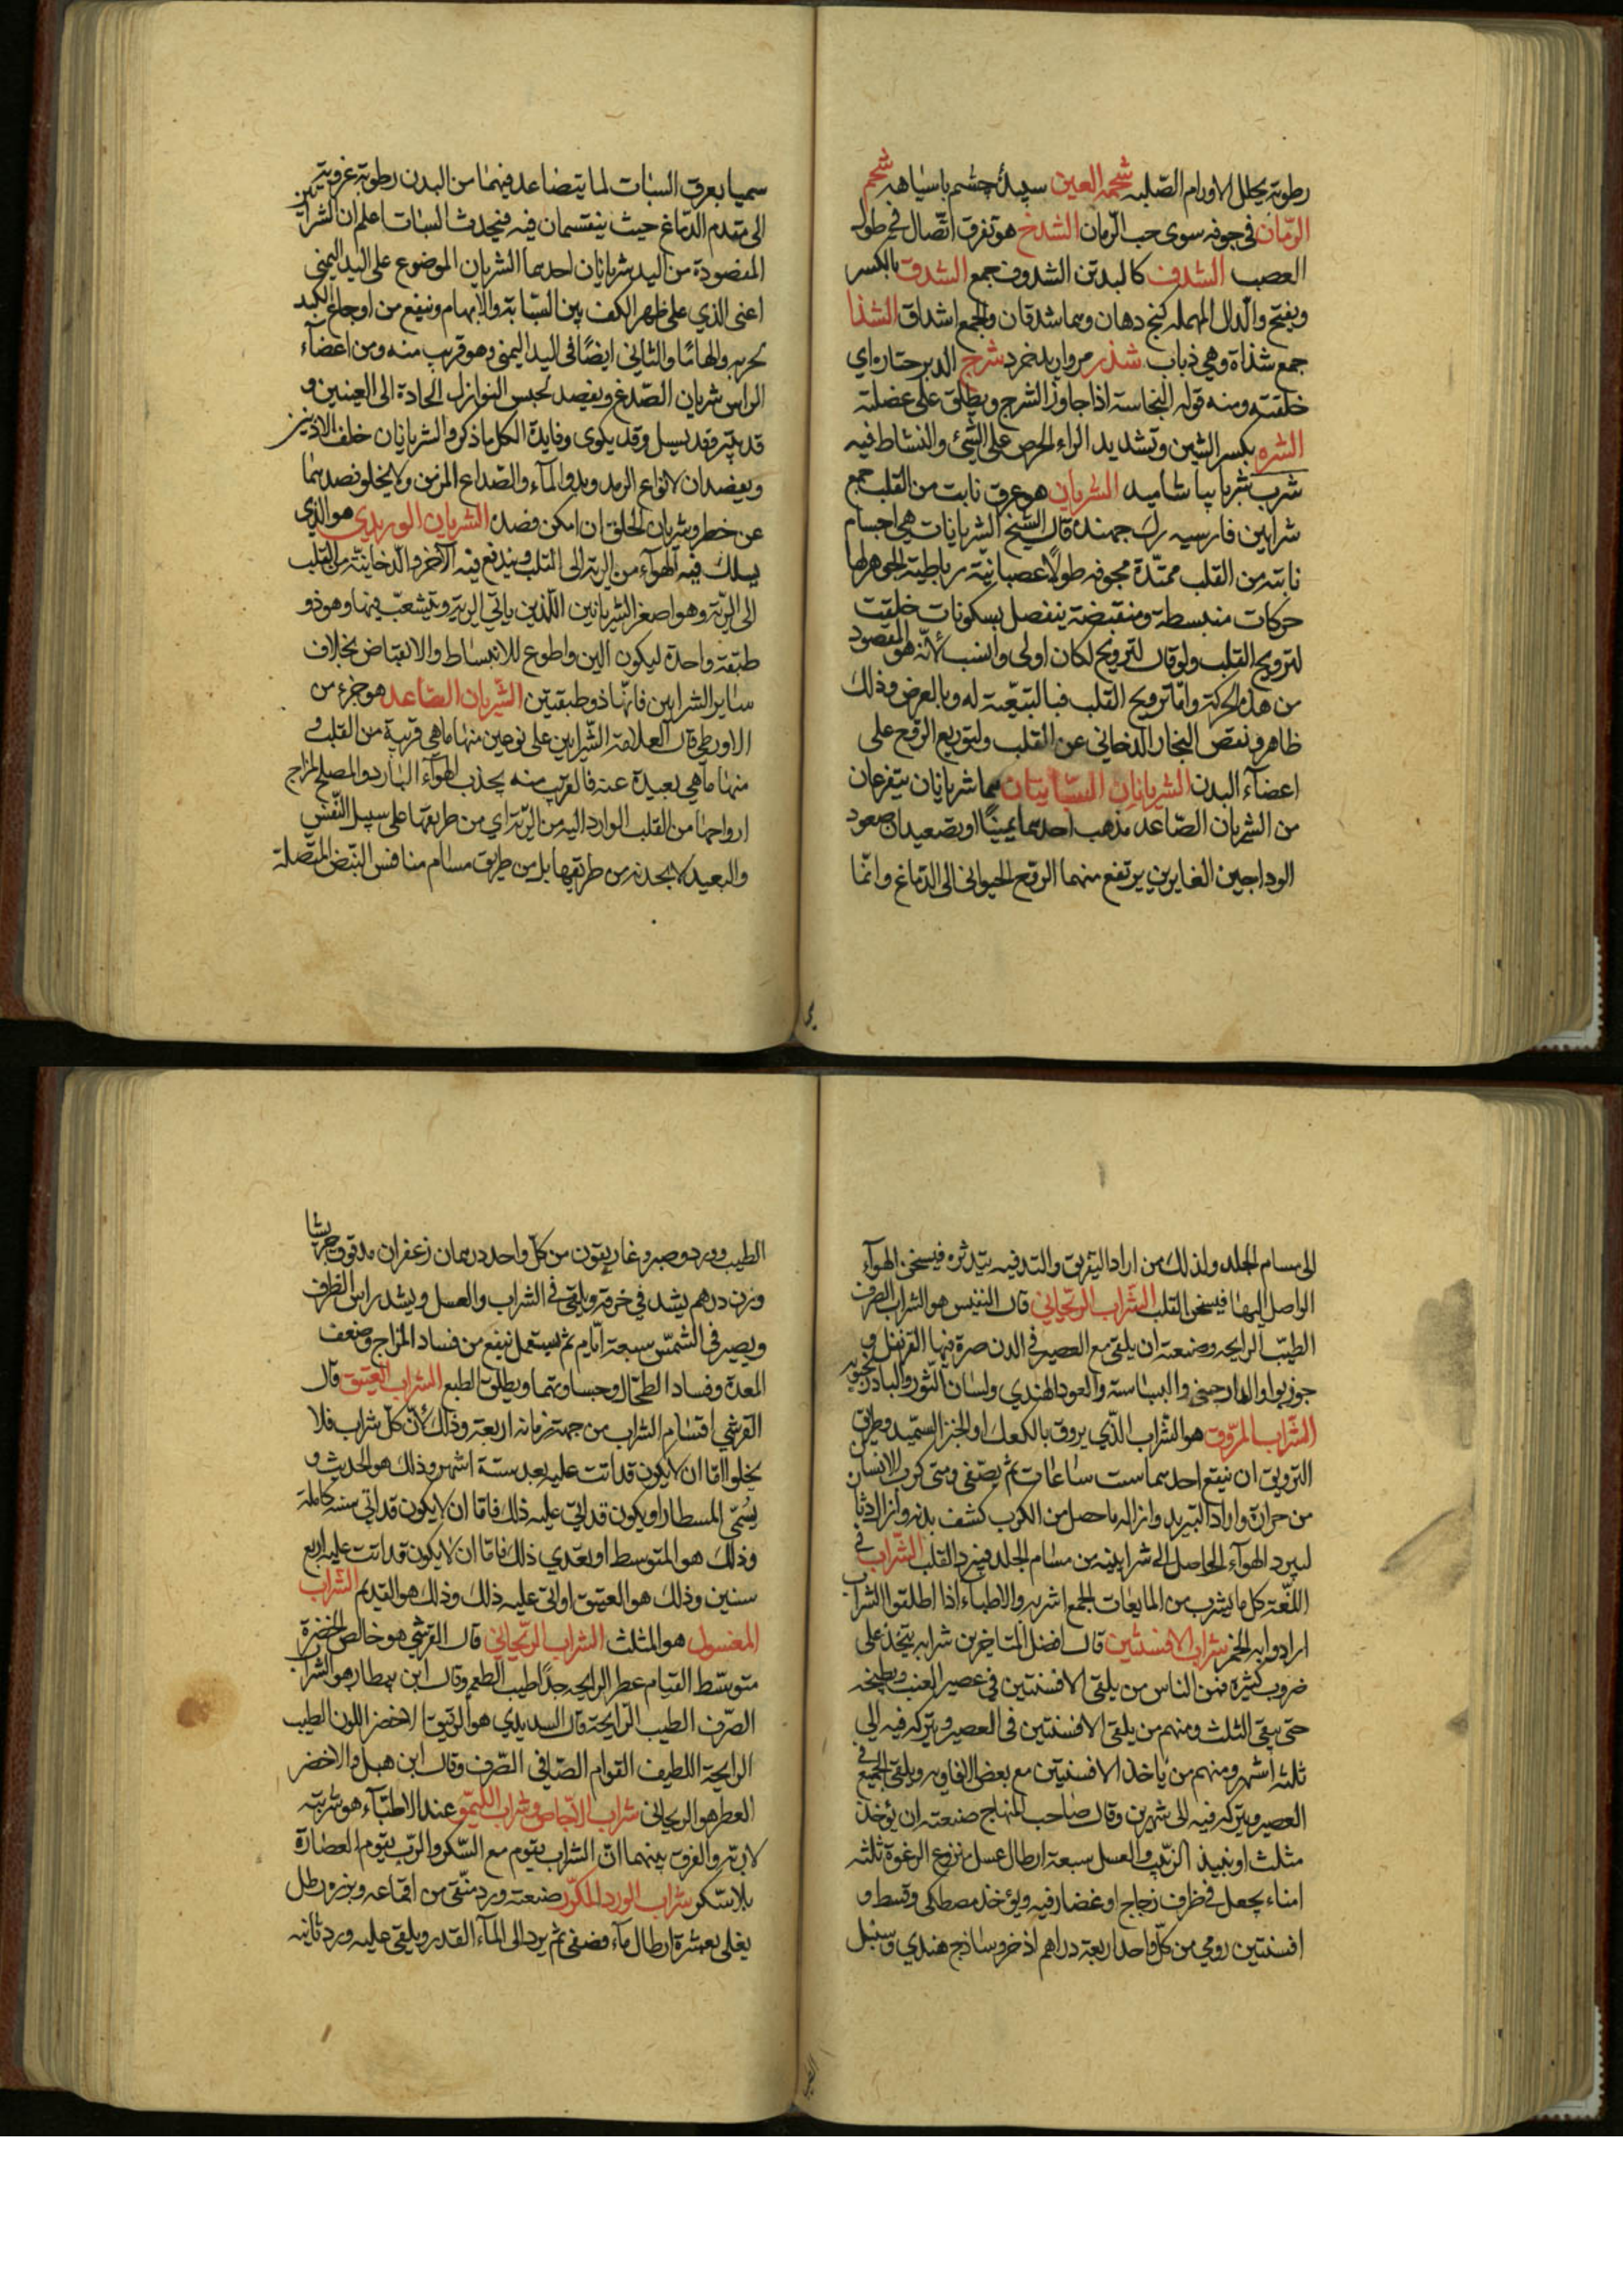 رطوبته يحلل الاورام الصّلبه شحمة العين سپيدۀ چشم باسياهه شحم
الرّمان فى جوفه سوى حب الرّمان الشدخ هو تفرق اتّصال فى طول
العصب الشدف كالبدن الشدوف جمع الشدق بالكسر
وبفتح والدال المهمله كنج دهان وهما شدقان والجمع اشداق الشذا
جمع شذاة وهي ذباب شذر مرواريد خرد شرج الدبر حتاره اي
خلقته ومنه قوله النجاسة اذا جاوز الشرج ويطلق على عضلته
الشره بكسر الشين وتشديد الراء الحرص على الشيئ والنشاط فيه
شرب شربا بياشاميد الشريان هو عرق نابت من القلب جمع
شرايين فارسيه رك جهنده قال الشيخ الشريانات هي اجسام
نابته من القلب ممتدّة مجوفه طولًا عصبانيّة رباطية الجوهر لها
حركات منبسطة ومنقبضة ينفصل بسكونات خلقت
لترويح القلب ولو قال لترويح لكان اولى وانسب لأنّه هو المقصود
من هذه الحركة وامّا ترويح القلب فبالتبعيّة له وبالعرض وذلك
ظاهر ونفض البخار الدخاني عن القلب ولتوزيع الروح على
اعضآء البدن الشريانان السّباتيان هما شريانان يتفرعان
من الشريان الصّاعد مذهب احدهما يمينًا او يصعدان صعود
الوداجين الغايرين يرتفع منهما الروح الحيواني الى الدّماغ وانّما
سميا بعرق السبات لما يتصاعد فيهما من البدن رطوبة غروية
الى مقدم الدّماغ حيث ينقسمان فيه فيحدث السبات اعلم ان الشرايين
المفصودة من اليد شريانان احدهما الشريان الموضوع على اليد اليمنى
اعنى الذي على ظهر الكف بين السّبابة والابهام وينفع من اوجاع الكبد
والثاني ايضًا فى اليد اليمنى وهو قريب منه ومن اعضآء
الراس شريان الصّدغ ويفصد لحبس النوازل الحادة الى العينين و
قد يبتر وقد يسيل وقد يكوى وفايدة الكل ما ذكر والشريانان خلف الاذنين
ويفصدان لانواع الرمد وبدو المآء والصّداع المزمن ولا يخلو فصدهما
عن خطر وشريان الحلق ان امكن فصده الشريان الوريدي هو الذي
يسلك فيه الهوآء من الرية الى القلب ويندفع فيه الابخرة الدخانيّة من القلب
الى الريّة وهو اصغر الشريانين اللذين ياتي الرية ويتشعّب فيها وهو ذو
طبقة واحدة ليكون الين واطوع للانبساط والانقباض بخلاف
ساير الشرايين فانّها ذو طبقتين الشّريان الصّاعد هو جزء من
الاورطي قال العلامة الشّرايين على نوعين منها ما هي قريبة من القلب و
منها ما هي بعيدة عنه فالقريب منه يجذب الهوآء البارد والمصلح لمزاج
ارواحها من القلب الوارد اليه من الريّة اي من طريقها على سبيل النّفس
والبعيد لا يجذبه من طريقها بل من طريق مسام منافس النبض المتّصلة
الى مسام الجلد ولذلك من اراد التعريق والتدفيه يتدثّره فيسخن الهوآء
الواصل اليها فيسخن القلب الشراب الريحاني قال النفيس هو الشراب الصرف
الطيّب الرايحه وصنعته ان يلقى مع العصير فى الدن صرة فيها القرنفل و
جوز بوا والدارصيني والبسباسة والعود الهندي ولسان الثّور والبادرنجبويه
الشّراب المروّق هو الشراب الذّي يروق بالكعك او الخبز السّميد وطريق
الترويق ان ينقع احدهما ست ساعات ثم يصفى ومتى كرب الانسان
من حرارة واراد التبريد وازاله ما حصل من الكرب كشف بدنه وازال دثاره
ليبرد الهوآء الحاصل الى شرايينه من مسام الجلد فيبرد القلب الشّراب في
اللغّة كل ما يشرب من المايعات الجمع اشربه والاطباء اذا اطلقوا الشراب
ارادوا به الخمر شراب الافسنتين قال افضل المتاخرين شرابه يتخذ على
ضروب كثيرة فمن الناس من يلقى الافسنتين فى عصير العنب ويطبخه
حتى يبقى الثلث ومنهم من يلقى الافسنتين فى العصير ويتركه فيه الى
ثلثه اشهر ومنهم من ياخذ الافسنتين مع بعض الافاويه ويلقى الجميع في
العصير ويتركه فيه الى شهرين وقال صاحب المنهاج صنعته ان يؤخذ
مثلث او نبيذ الزبيب والعسل سبعة ارطال عسل منزوع الرغوة ثلثه
امناء يجعل فى ظرف زجاج او غضار فيه ويؤخذ مصطكى وقسط و
افسنتين رومي من كلّ واحد اربعة دراهم اذخر وساذج هندي وسنبل
الطيب وورد وصبر وغاريقون من كلّ واحد درهمان زعفران مدقوق جريشا
وزن درهم يشد في خرقة ويلقى فى الشراب والعسل ويشد راس الظرف
ويصير فى الشّمس سبعة ايّام ثم يستعمل ينفع من فساد المزاج وضعف
المعدة وفساد الطحال وحساوتها ويطلق الطبع الشراب العتيق قال
القرشي اقسام الشراب من جهة زمانه اربعة وذلك لأنّ كلّ شراب فلا
يخلوا امّا ان لا يكون قد اتت عليه بعد ستة اشهر وذلك هو الحديث و
يسُمّى المسطار او يكون قد اتي عليه ذلك فامّا ان لا يكون قد اتى سنه كاملة
وذلك هو المتوسط او تعدّي ذلك فامّا ان لا يكون قد اتت عليه اربع
سنين وذلك هو العتيق او اتى عليه ذلك وذلك هو القديم الشراب
المغسول هو المثلث الشراب الريحاني قال القرشي هو خالص الخضرة
متوسّط القيام عطر الرايحه جدًا طيب الطعم وقال ابن بيطار هو الشراب
الصّرف الطيب الرّايحة قال السديدي هو الرّقيق الاخضر اللون الطيب
الرايحة اللطيف القوام الصّافي الصّرف وقال ابن هبل والاخضر
العطر هو الريحانى شراب الاجّاص وشراب الليمو عند الاطبآء هو شربته
لا ربّه والفرق بينهما انّ الشراب يقوم مع السّكر والربّ يقوم العصارة
بلا سّكر شراب الورد المكرّر صنعته ورد منقّى من اقماعه وبزره رطل
يغلى بعشرة ارطال مآء ويصفى ثم يرد الى المآء القدر ويلقى عليه ورد ثانيه